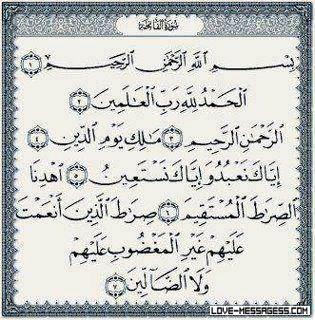 سورة الفاتحة
بِسْمِ اللَّهِ الرَّحْمَٰنِ الرَّحِيمِ ١
الْحَمْدُ لِلَّهِ رَبِّ الْعَالَمِينَ ٢
الرَّحْمَٰنِ الرَّحِيمِ ٣ مَالِكِ يَوْمِ الدِّينِ ٤
إِيَّاكَ نَعْبُدُ وَإِيَّاكَ نَسْتَعِينُ ٥ اهْدِنَا
الصِّرَاطَ الْمُسْتَقِيمَ ٦ صِرَاطَ الَّذِينَ أَنْعَمْتَ
عَلَيْهِمْ غَيْرِ الْمَغْضُوبِ عَلَيْهِمْ
وَلَا الضَّالِّينَ ٧
LOVE-MESSAGESS.COM